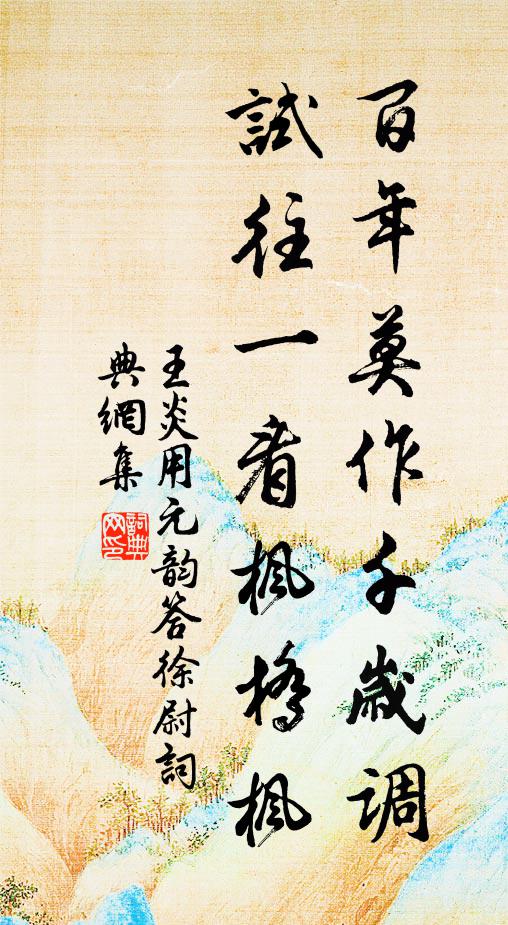 百年莫作千歲調
試往一看楓橋楓
王炎用元韵答徐尉詞
典網集
詞典網印